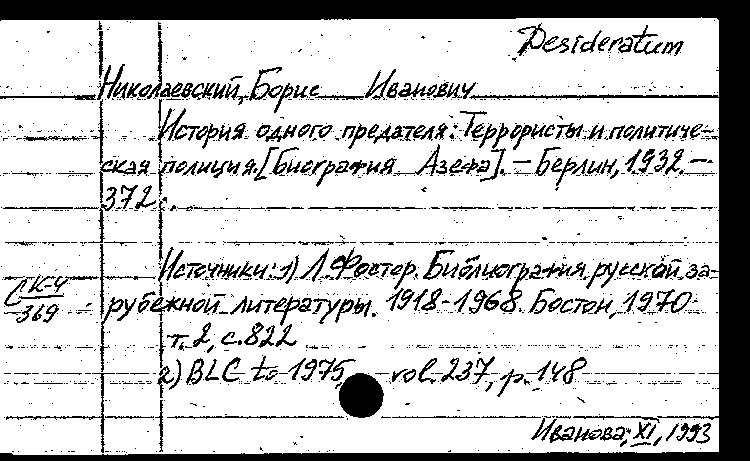 Desideratum
Николаевский, Борис Иванович
История одного предателя: Террористы и политиче-
ская полиция. [Биография Азефа]. — Берлин, 1932. —
372 с.
Источники: 1) Л. Фостер. Библиография русской за-
рубежной литературы. 1918-1968. Бостон, 1970
т. 2, с. 822
2) BLC to 1975, vol. 237, p. 148
СК-4
369
Иванова, XI, 1993